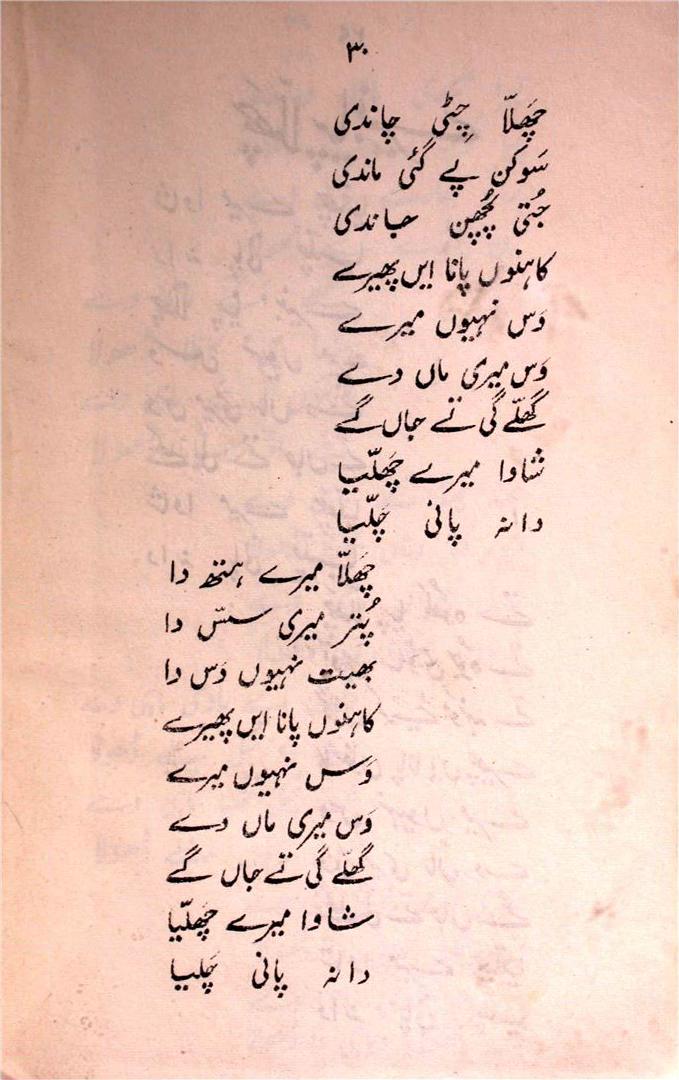 ۳۰
چَھلاّ چِٹی چاندی
سَوکن پے گئی ماندی
جُتی پُچھن جاندی
کاہنوں پانا ایں پھیرے
وَس نہیوں میرے
وَس میری ماں دے
گھلّے گی تے جاں گے
شاوا میرے چھلّیا
دانہ پانی چَلّیا
چھلاّ میرے ہتھ دا
پُتر میری سسّ دا
بھیت نہیوں دَس دا
کاہنوں پانا ایں پھیرے
وَس نہیوں میرے
وَس میری ماں دے
گھلّے گی تے جاں گے
شاوا میرے چھلّیا
دانہ پانی چَلیا